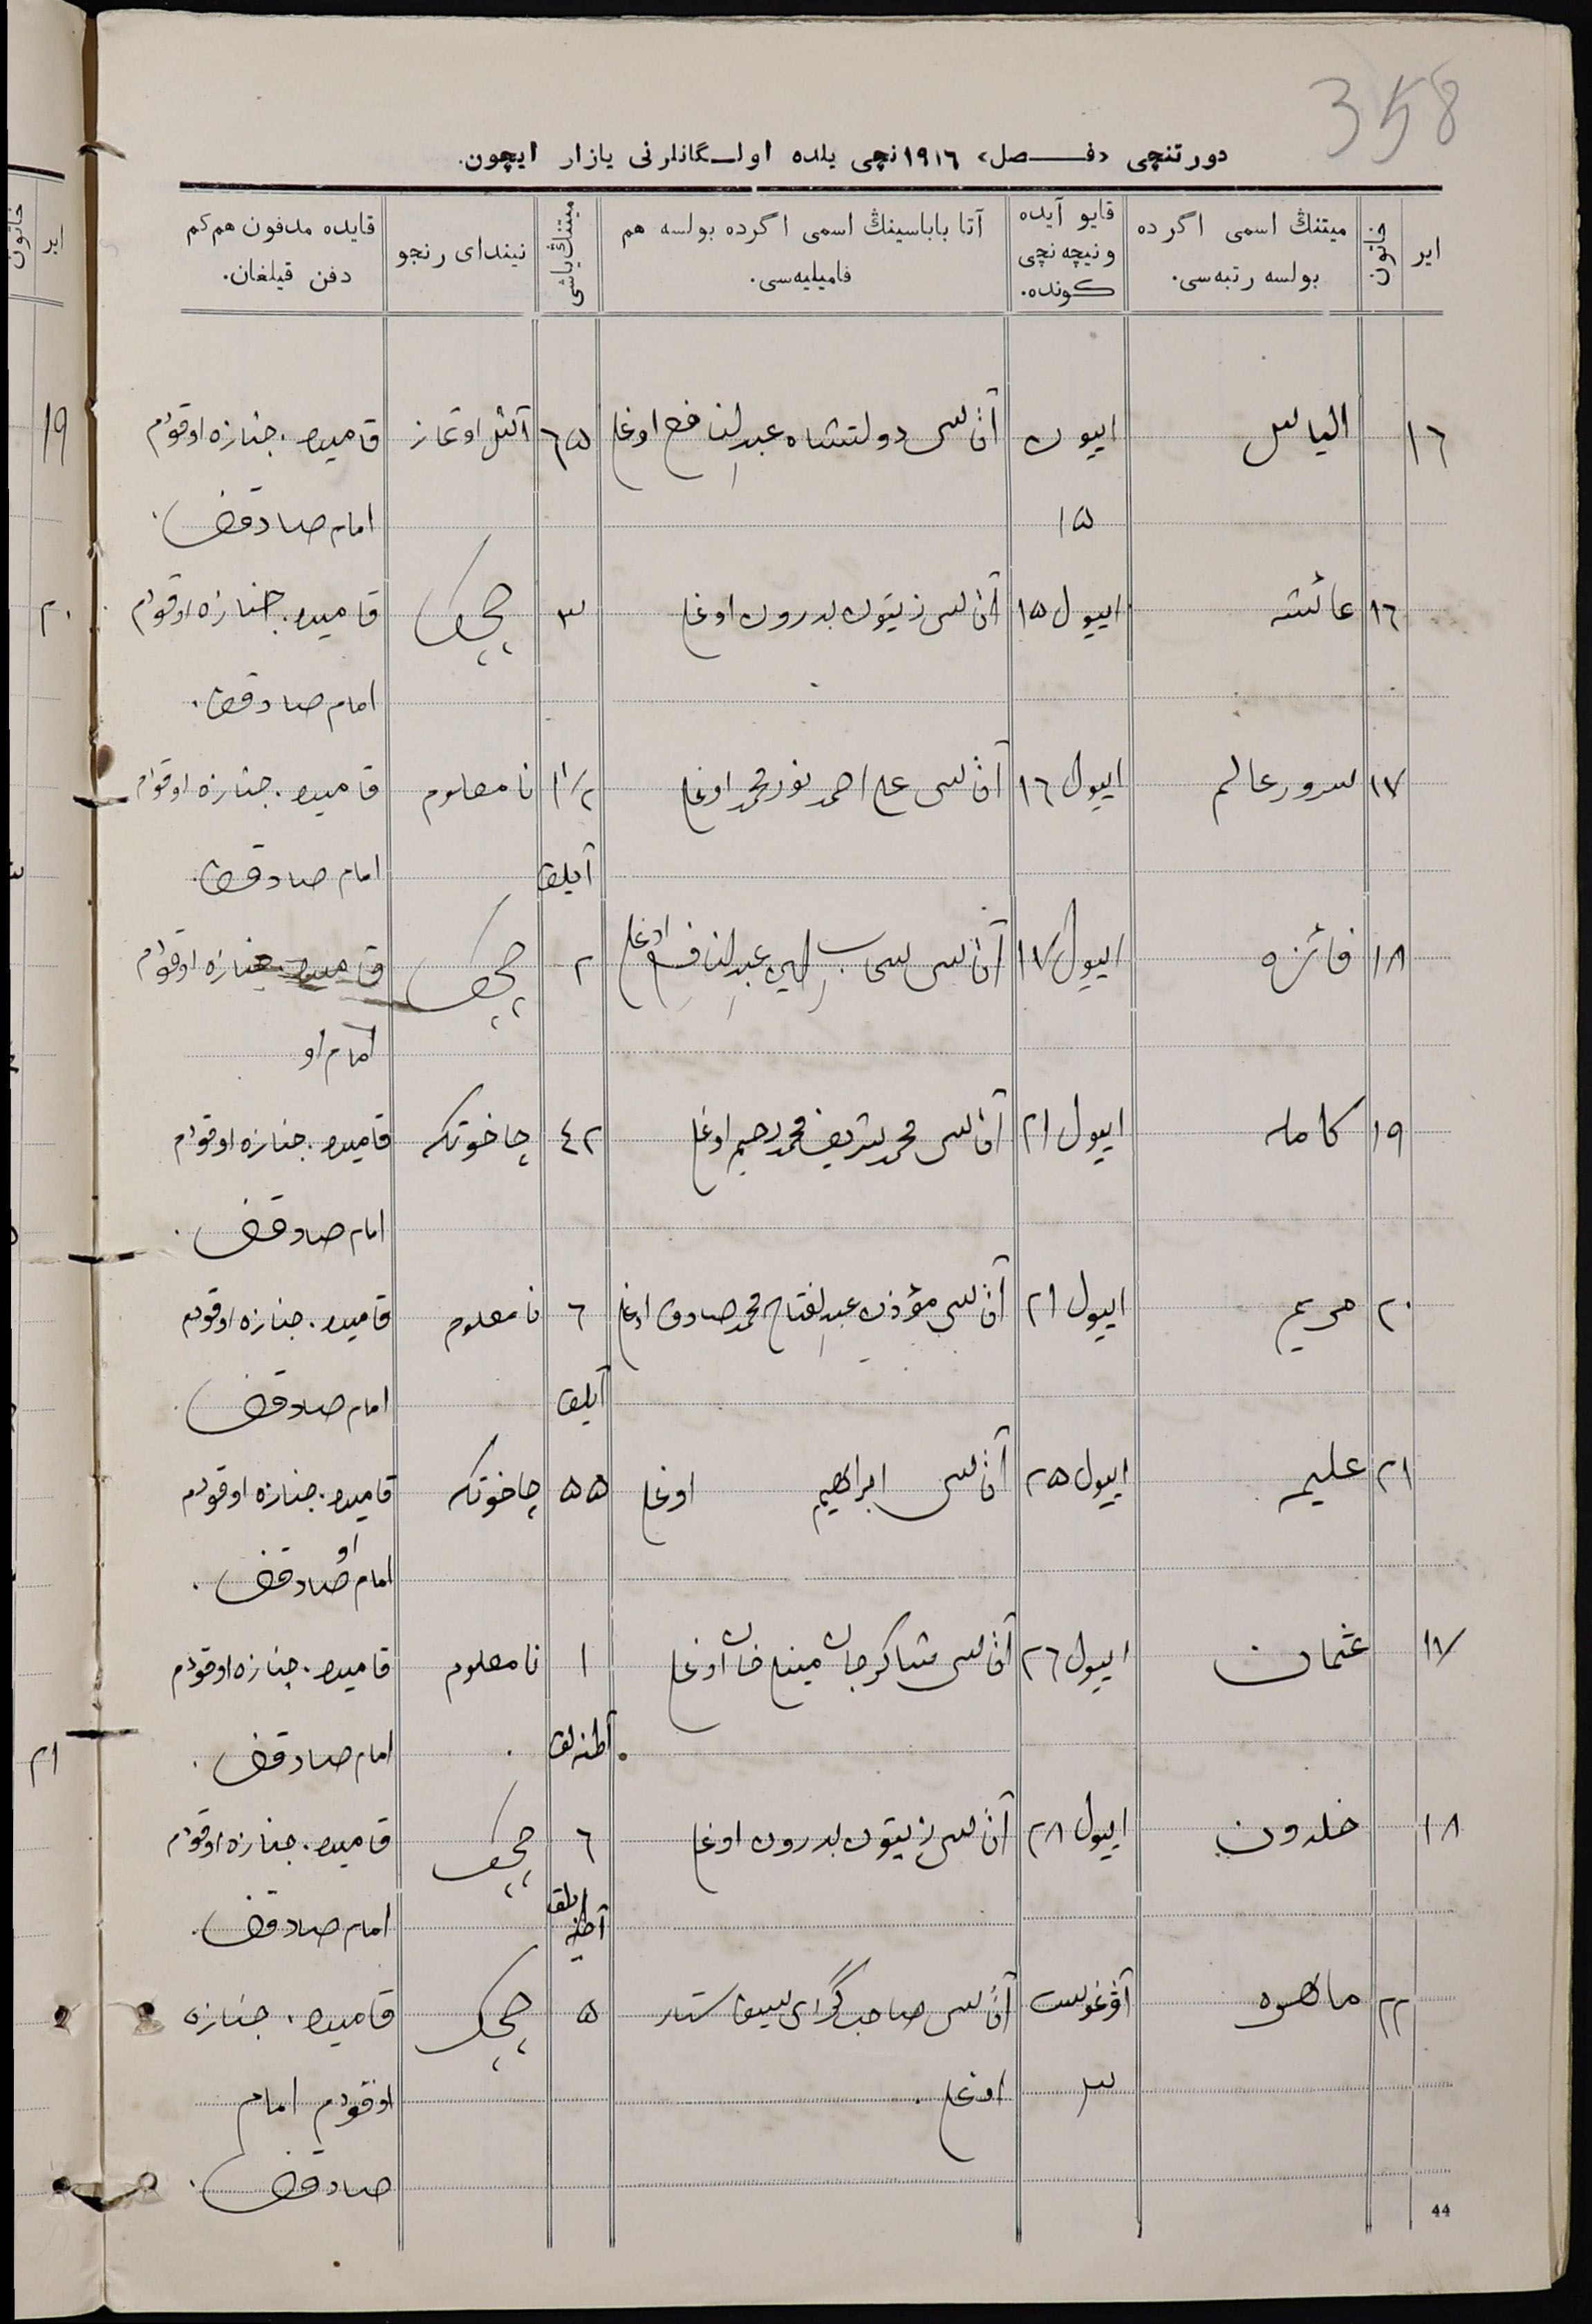 358
دورتنچی «فـــصل» ١٩١٦نچی یلده اولـگانلرنی یازار ایچون.
ایر
خاتون
میتنڭ اسمی اگرده
بولسه رتبه‌سی.
قایو آیده
ونیچه نچی
کونده.
آتا باباسینڭ اسمی اگرده بولسه هم
فامیلیه‌سی.
میتنڭ یاشی
نیندای رنجو
قایده مدفون هم کم
دفن قیلغان.
١٦ الیاس اییون آتاسی دولتشاه عبدالنافع اوغلی ٦٥ قامیده. جنازه اوقودم
١٥ امام صادقف.
١٦ عائشه اییول ١٥ آتاسی زیتون بدرون اوغلی ٣ چچک قامیده. جنازه اوقودم
امام صادقف.
١٧ سرورعالم اییول ١٦ آتاسی علی احمد نورمحمد اوغلی ١ ١/٢ نامعلوم قامیده. جنازه اوقودم
آیلق امام صادقف.
١٨ فائزه اییول ١٧ آتاسی عبدالنافع اوغلی ٢ چچک قامیده. جنازه اوقودم
امام او
١٩ کامله اییول ٢١ آتاسی محمدشریف محمدرحیم اوغلی ٤٢ چاخوتکه قامیده. جنازه اوقودم
امام صادقف.
٢٠ مریم اییول ٢١ آتاسی مؤذن عبدالفتاح محمدصادق اوغلی ٦ نامعلوم قامیده. جنازه اوقودم
آیلق امام صادقف.
٢١ علیمه اییول ٢٥ آتاسی ابراهیم اوغلی ٥٥ چاخوتکه قامیده. جنازه اوقودم
امام صادقف.
١٧ عثمان اییول ٢٦ آتاسی شاکرجان اوغلی ١ نامعلوم قامیده. جنازه اوقودم
آطنه‌لق امام صادقف.
١٨ خلدون اییول ٢٨ آتاسی زیتون بدرون اوغلی ٦ چچک قامیده. جنازه اوقودم
آطنه‌لق امام صادقف.
٢٢ ماهره آوغوست آتاسی صاحب گرای اوغلی ٥ چچک قامیده. جنازه
٣ اوقودم امام
صادقف.
44
١٩
٢٠
٢١